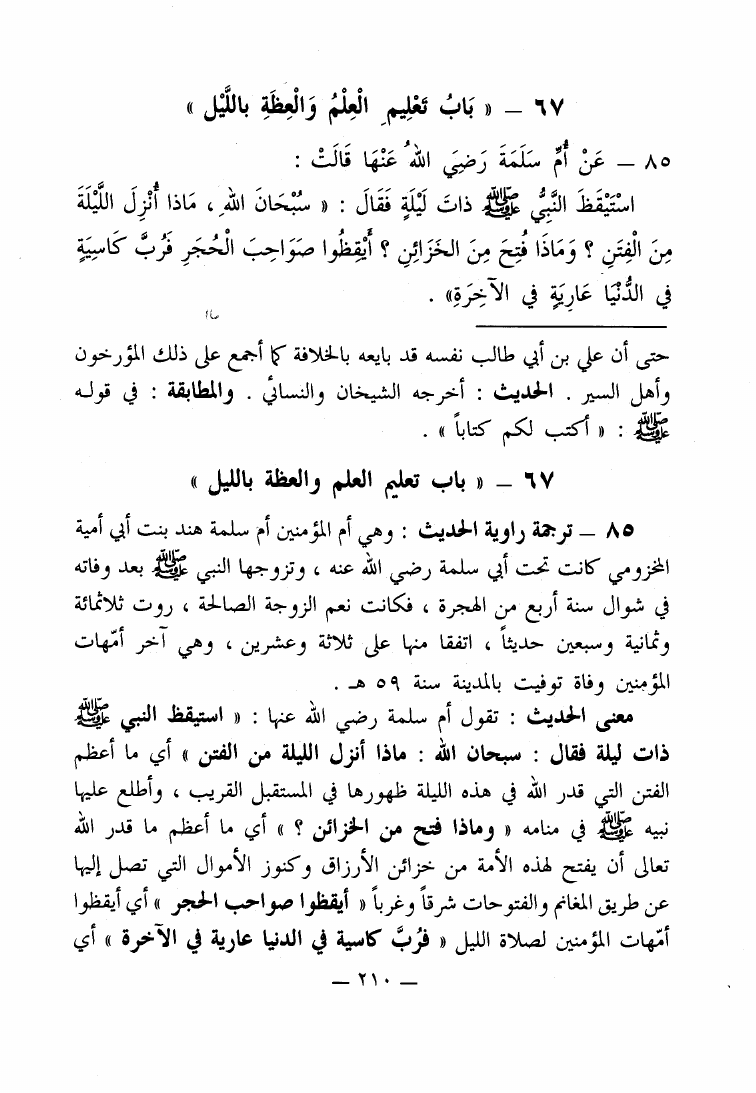 ٦٧ – « بَابُ تَعْلِيمِ الْعِلْمُ وَالْعِظَةِ بِاللَّيْلِ »
٨٥ – عَنْ أُمِّ سَلَمَةَ رَضِيَ اللهُ عَنْهَا قَالَتْ :
اسْتَيْقَظَ النَّبِيُّ ﷺ ذَاتَ لَيْلَةٍ فَقَالَ : « سُبْحَانَ اللهِ ، مَاذا أُنْزِلَ اللَّيْلَةَ
مِنَ الْفِتَنِ ؟ وَمَاذَا فُتِحَ مِنَ الخَزَائِنِ ؟ أَيْقِظُوا صَوَاحِبَ الْحُجَرِ فَرُبَّ كَاسِيَةٍ
في الدُّنْيَا عَارِيَةٍ في الآخِرَةِ» .
حتى أن علي بن أبي طالب نفسه قد بايعه بالخلافة كما أجمع على ذلك المؤرخون
وأهل السير . الحديث : أخرجه الشيخان والنسائي . والمطابقة : في قوله
ﷺ : « أكتب لكم كتاباً » .
٦٧ – « باب تعليم العلم والعظة بالليل »
٨٥ – ترجمة راوية الحديث : وهي أم المؤمنين أم سلمة هند بنت أبي أمية
المخزومي كانت تحت أبي سلمة رضي الله عنه ، وتزوجها النبي ﷺ بعد وفاته
في شوال سنة أربع من الهجرة ، فكانت نعم الزوجة الصالحة ، روت ثلاثمائة
وثمانية وسبعين حديثاً ، اتفقا منها على ثلاثة وعشرين ، وهي آخر أمّهات
المؤمنين وفاة توفيت بالمدينة سنة ٥٩ هـ .
معنى الحديث : تقول أم سلمة رضي الله عنها : « استيقظ النبي ﷺ
ذات ليلة فقال : سبحان الله : ماذا أنزل الليلة من الفتن » أي ما أعظم
الفتن التي قدر الله في هذه الليلة ظهورها في المستقبل القريب ، وأطلع عليها
نبيه ﷺ في منامه « وماذا فتح من الخزائن ؟ » أي ما أعظم ما قدر الله
تعالى أن يفتح لهذه الأمة من خزائن الأرزاق وكنوز الأموال التي تصل إليها
عن طريق المغانم والفتوحات شرقاً وغرباً « أيقظوا صواحب الحجر » أي أيقظوا
أمّهات المؤمنين لصلاة الليل « فرُبَّ كاسية في الدنيا عارية في الآخرة » أي
– ٢١٠ –